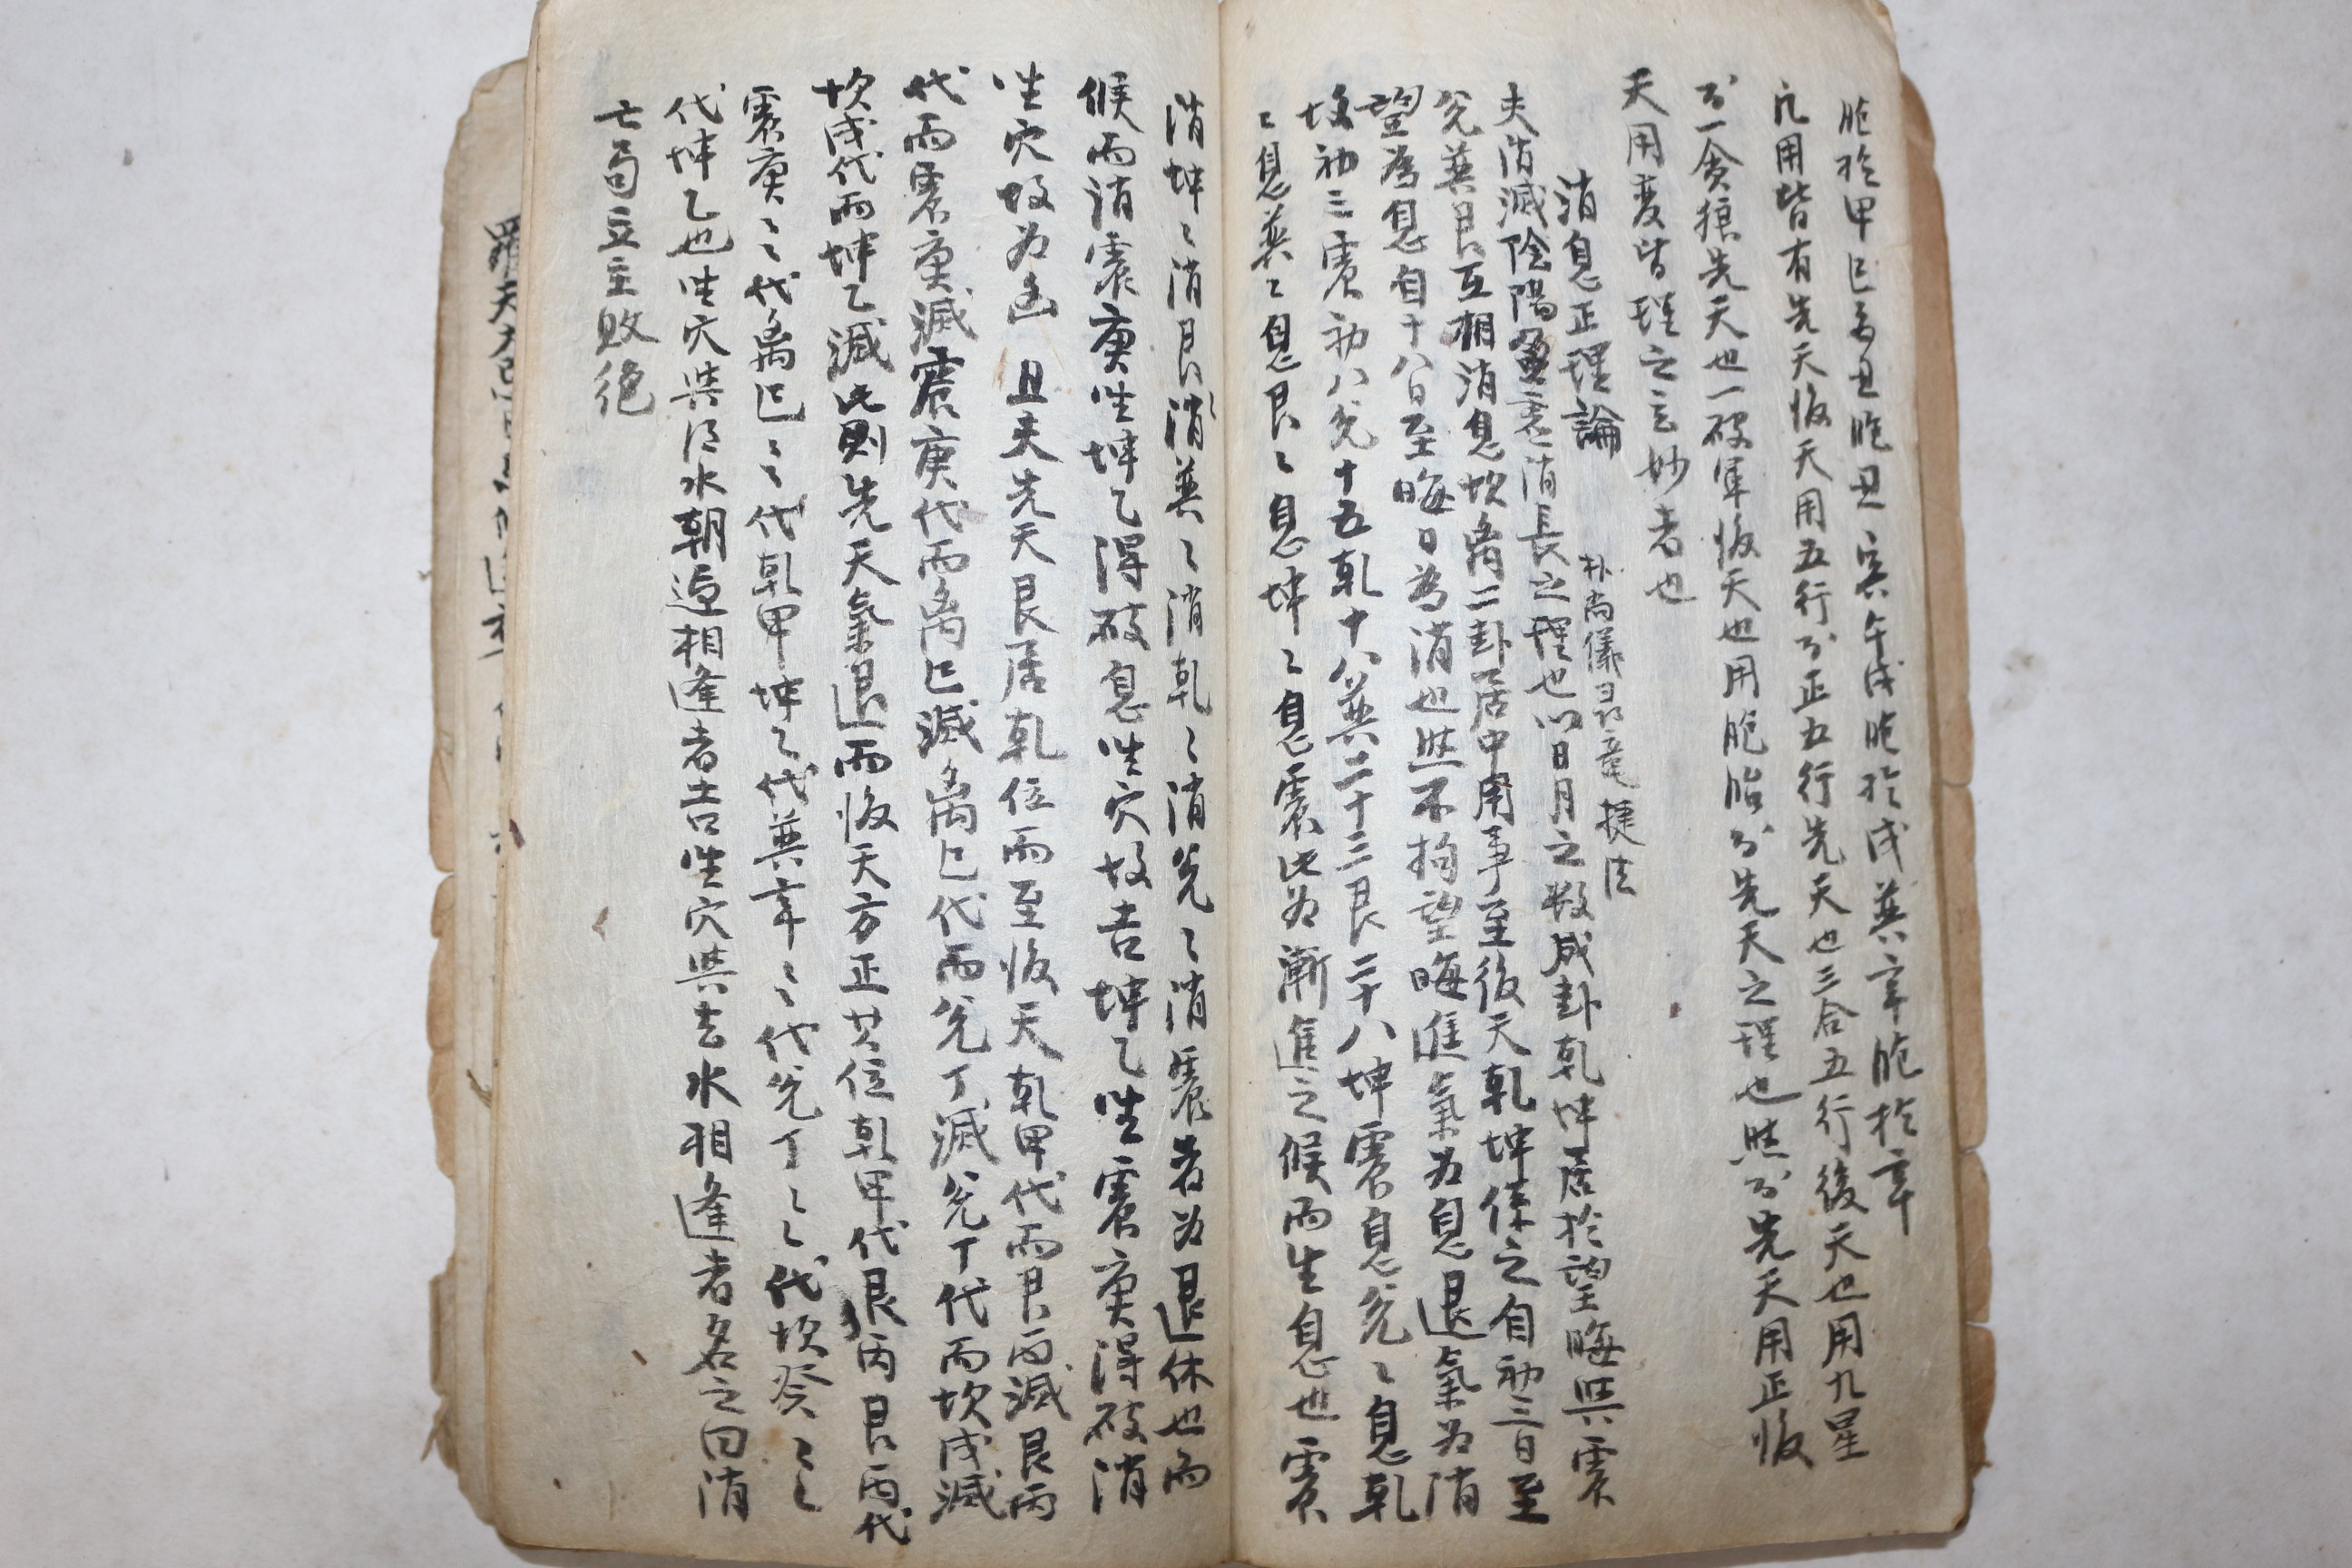 胞於甲巳酉丑胞丑寅午戌胞於戌巽辛胞於辛
凡用皆有先天後天用五行分正五行先天也三合五行後天也用九星
分一貪狼先天也一破軍後天也用胞胎分先天之理也然分先天用正後
天用変皆理之玄妙者也
消息正理論
朴尚儀尋竜捷法
夫消滅陰陽盈虛消長之理也以日月之数成卦乾坤居於望晦與震
兌巽艮互相消息坎离二卦居中用事至後天乾坤係之自初三日至
望為息自十八日至晦日為消也然不拘望晦進氣为息退氣为消
故初三震初八兌十五乾十八巽二十三艮二十八坤震息兌兌〻息乾
〻息巽〻息艮〻息坤〻息震此为漸進之候而生息也震
消坤〻消艮〻消巽〻消乾〻消兌〻消震者为退休也而
候而消震庚坐坤乙得破息坐穴故吉坤乙坐震庚得破消
坐穴故为凶 且夫先天艮居乾位而至後天乾甲代而艮丙滅艮丙
代而震庚滅震庚代而离巳滅离巳代而兌丁滅兌丁代而坎戌滅
坎戌代而坤乙滅此則先天氣退而後天方正其位乾甲代艮丙艮丙代
震庚〻〻代离巳〻〻代乾甲坤乙代巽辛〻〻代兌丁〻〻代坎癸〻〻
代坤乙也坐穴與得水朝迎相逢者吉坐穴與去水相逢者名之曰消
亡局立主敗絶